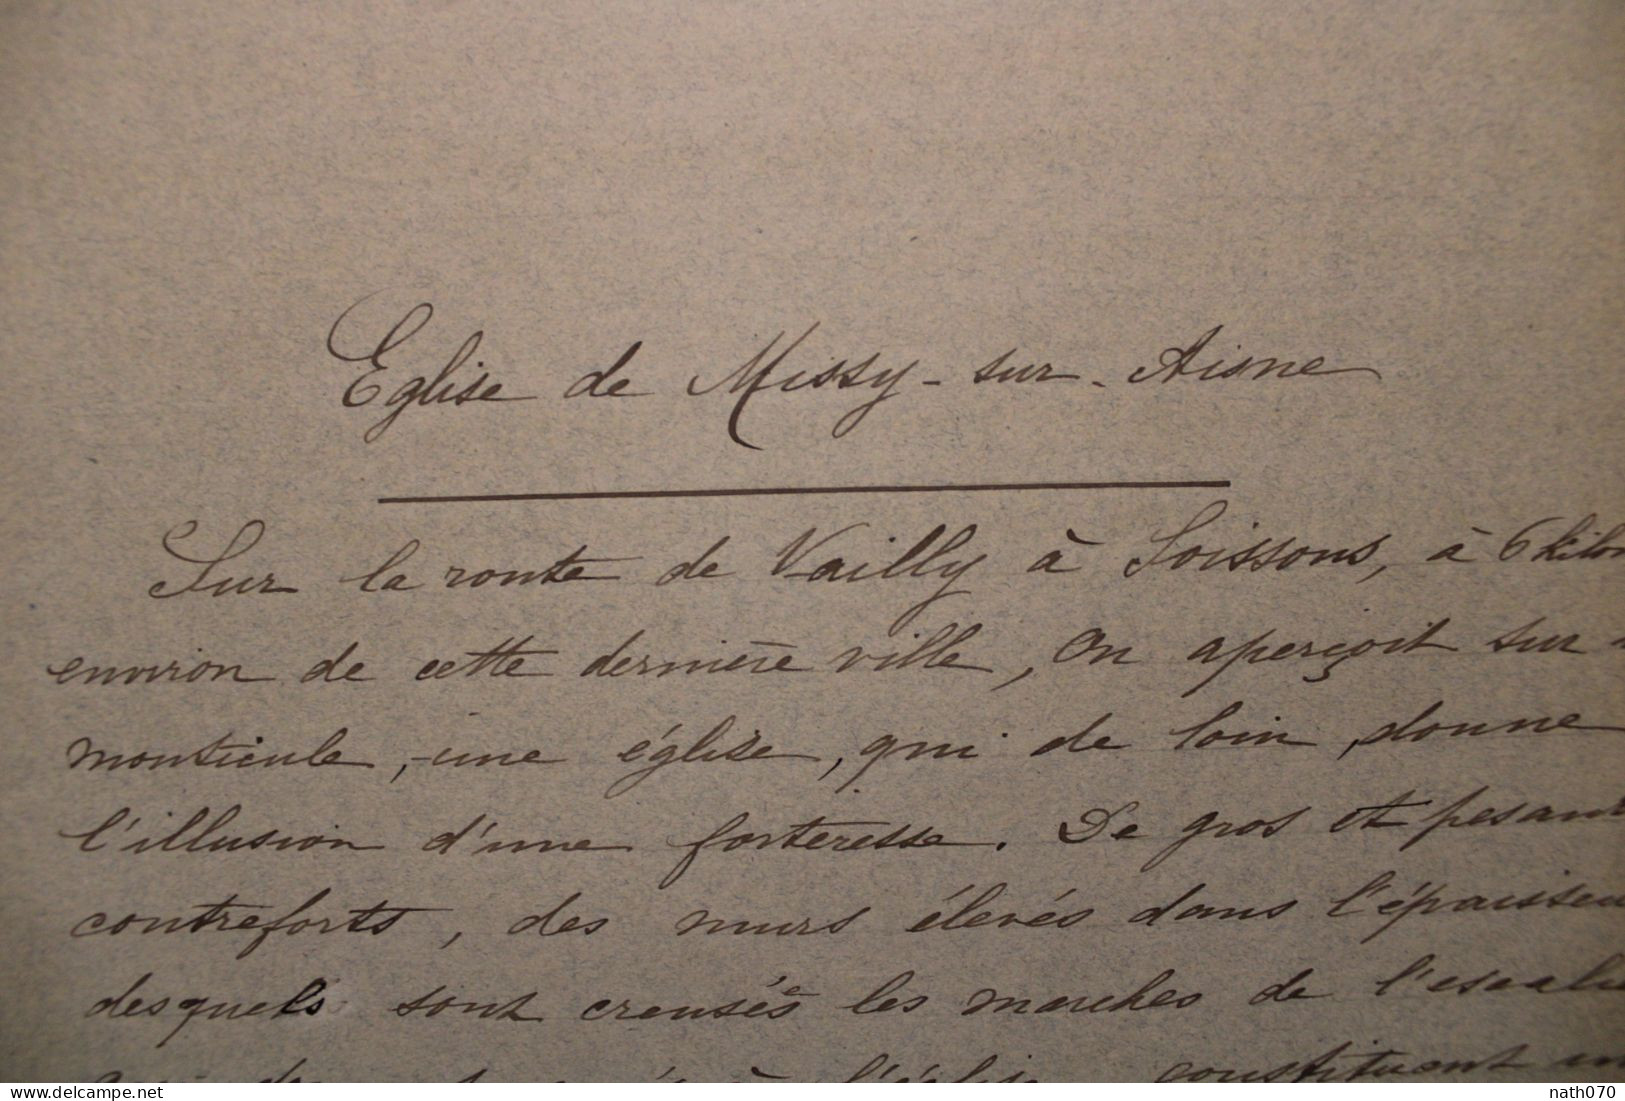 Eglise de Missy-sur-Aisne
Sur la route de Vailly à Soissons, à 6 kilom
environ de cette dernière ville, on aperçoit sur
monticule, une église, qui de loin, donne
l'illusion d'une forteresse. De gros et pesant
contreforts, des murs élevés dans l'épaisseu
desquels sont creusés les marches de l'escalie
à l'église constituent un
delcampe.net
nath070